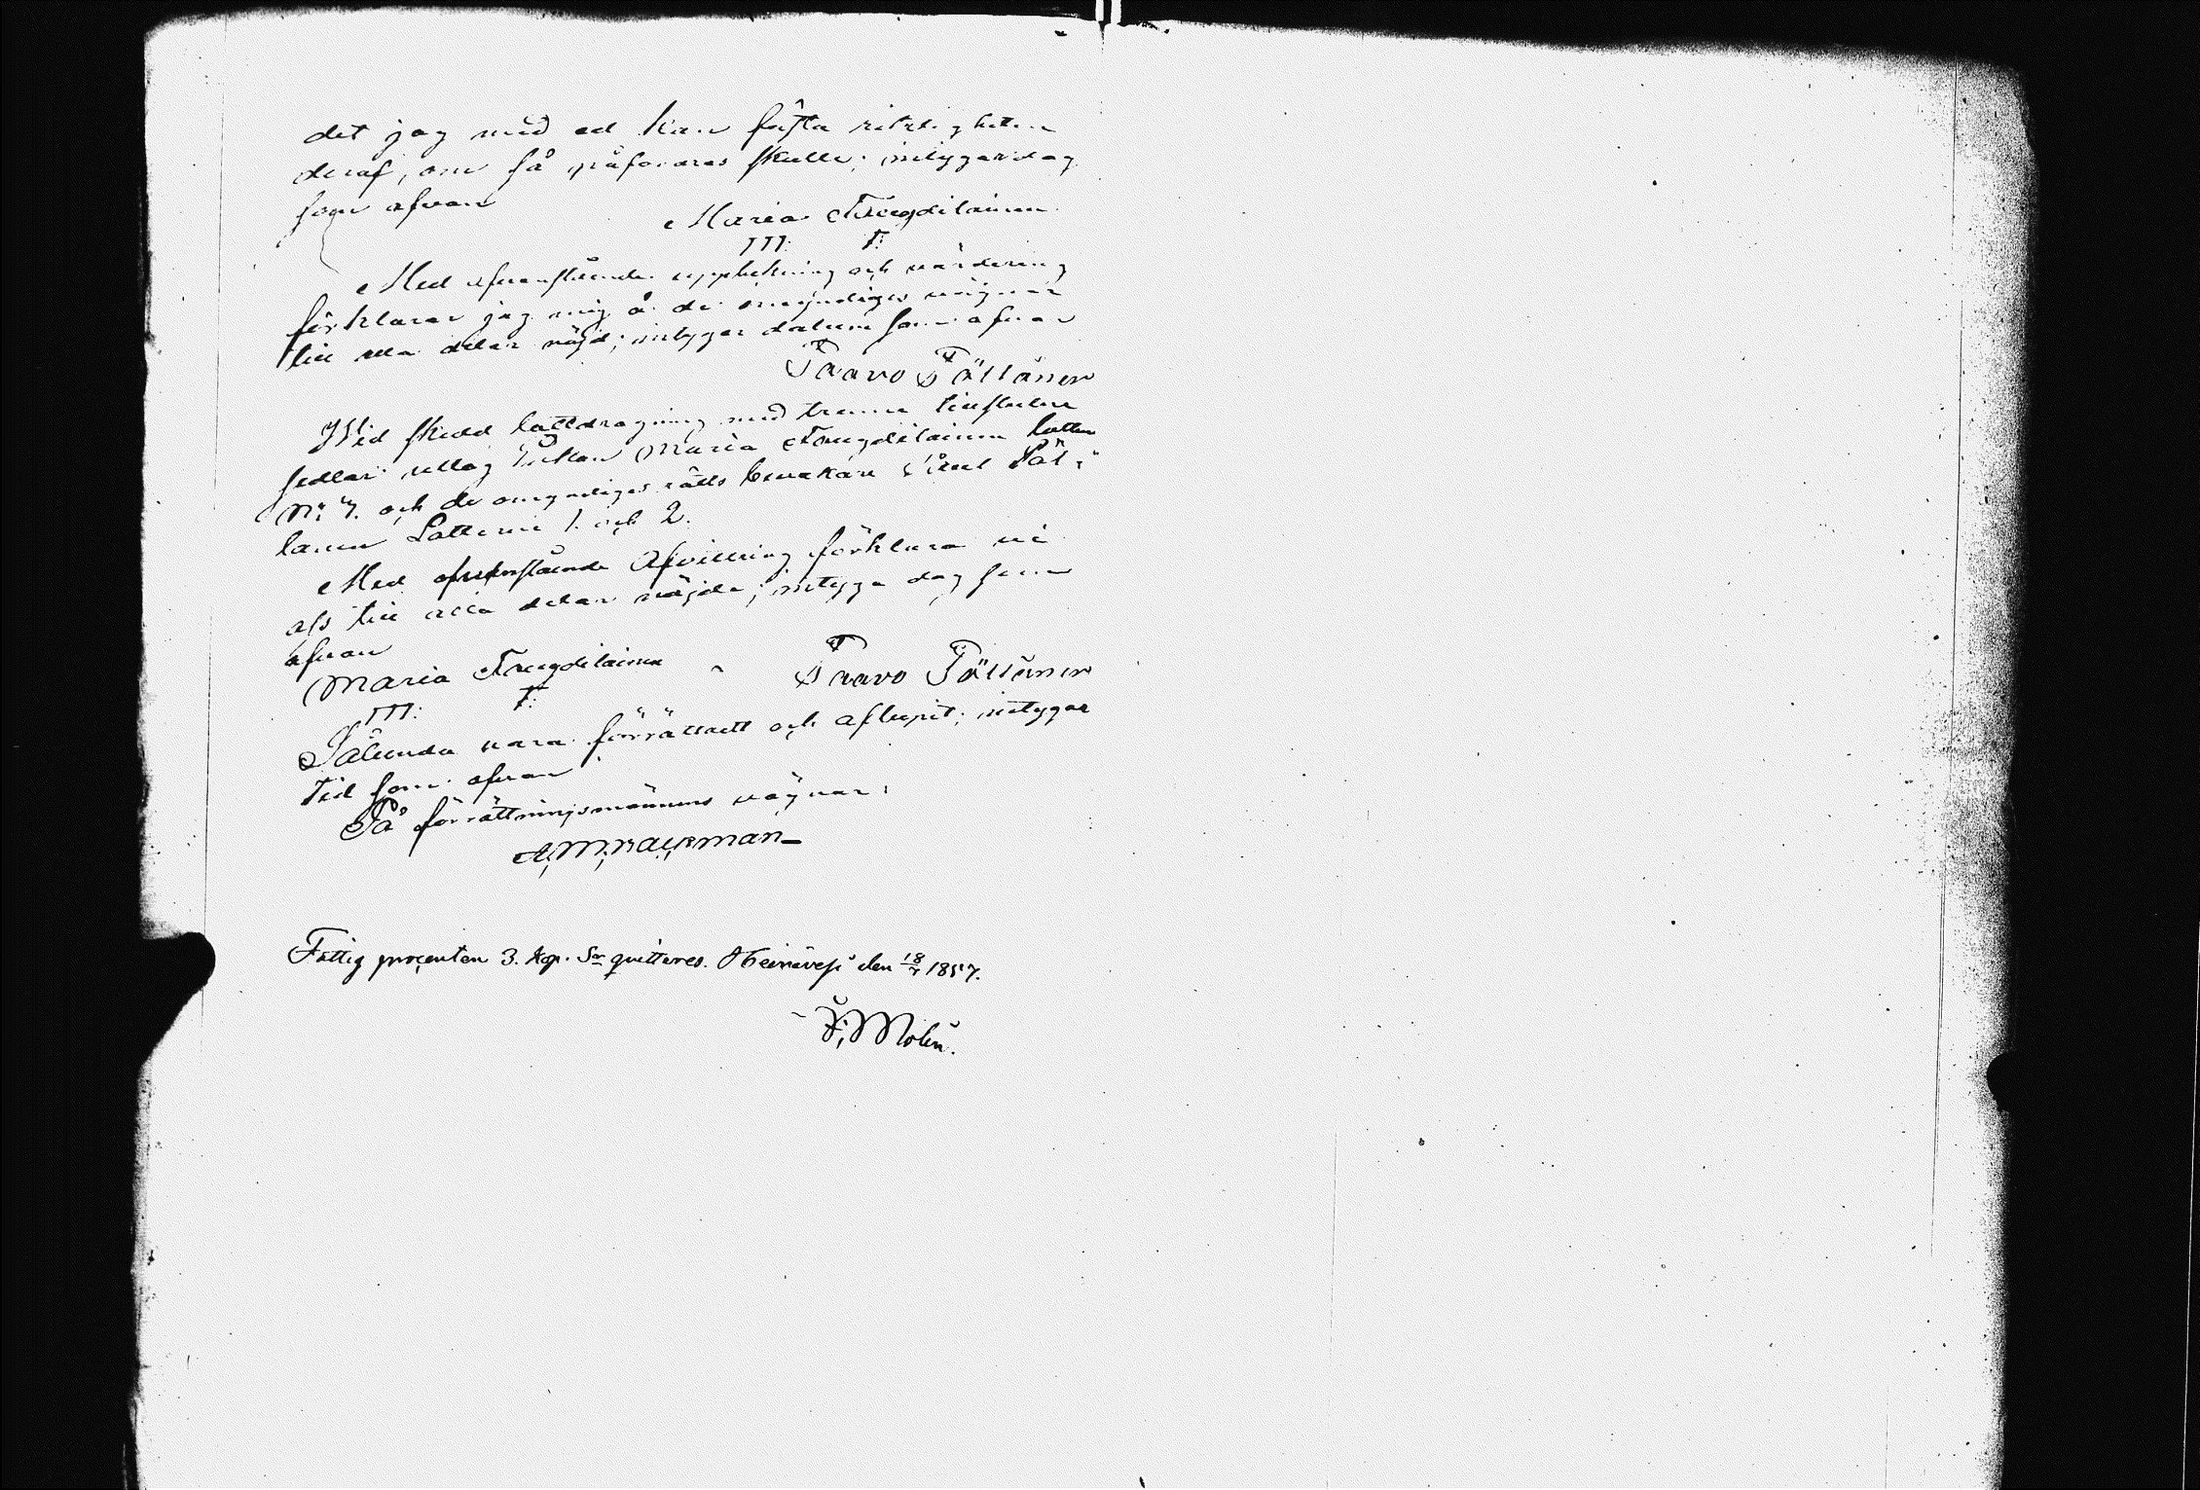 det jag med ed kan fästa riktigheten
deraf, om så påfordras skulle; intygar dag
som ofvan
Maria
M: T:
Med ofvanstående uppteckning och värdering
förklarar jag mig å de omyndiges vägnar
till alla delar nöjd; intygar datum som ofvan
Paavo Pöllänen
Wid skedd lottdragning med trenne
sedlar uttog Enkan Maria lotten
och de omyndiges rätts bevakare
Lotterne 1. och 2.
Med ofvanstående Afvittring förklara vi
oss till alla delar nöjde; intyga dag som
ofvan
Maria Paavo Pöllänen
M: T:
Sålunda vara förrättadt och aflupit; intygar
tid som ofvan
På förrättningsmännens vägnar:
Fattig procenten 3. kop. Sr quitteras. Heinävesi den 18/7 1857.
Molin.